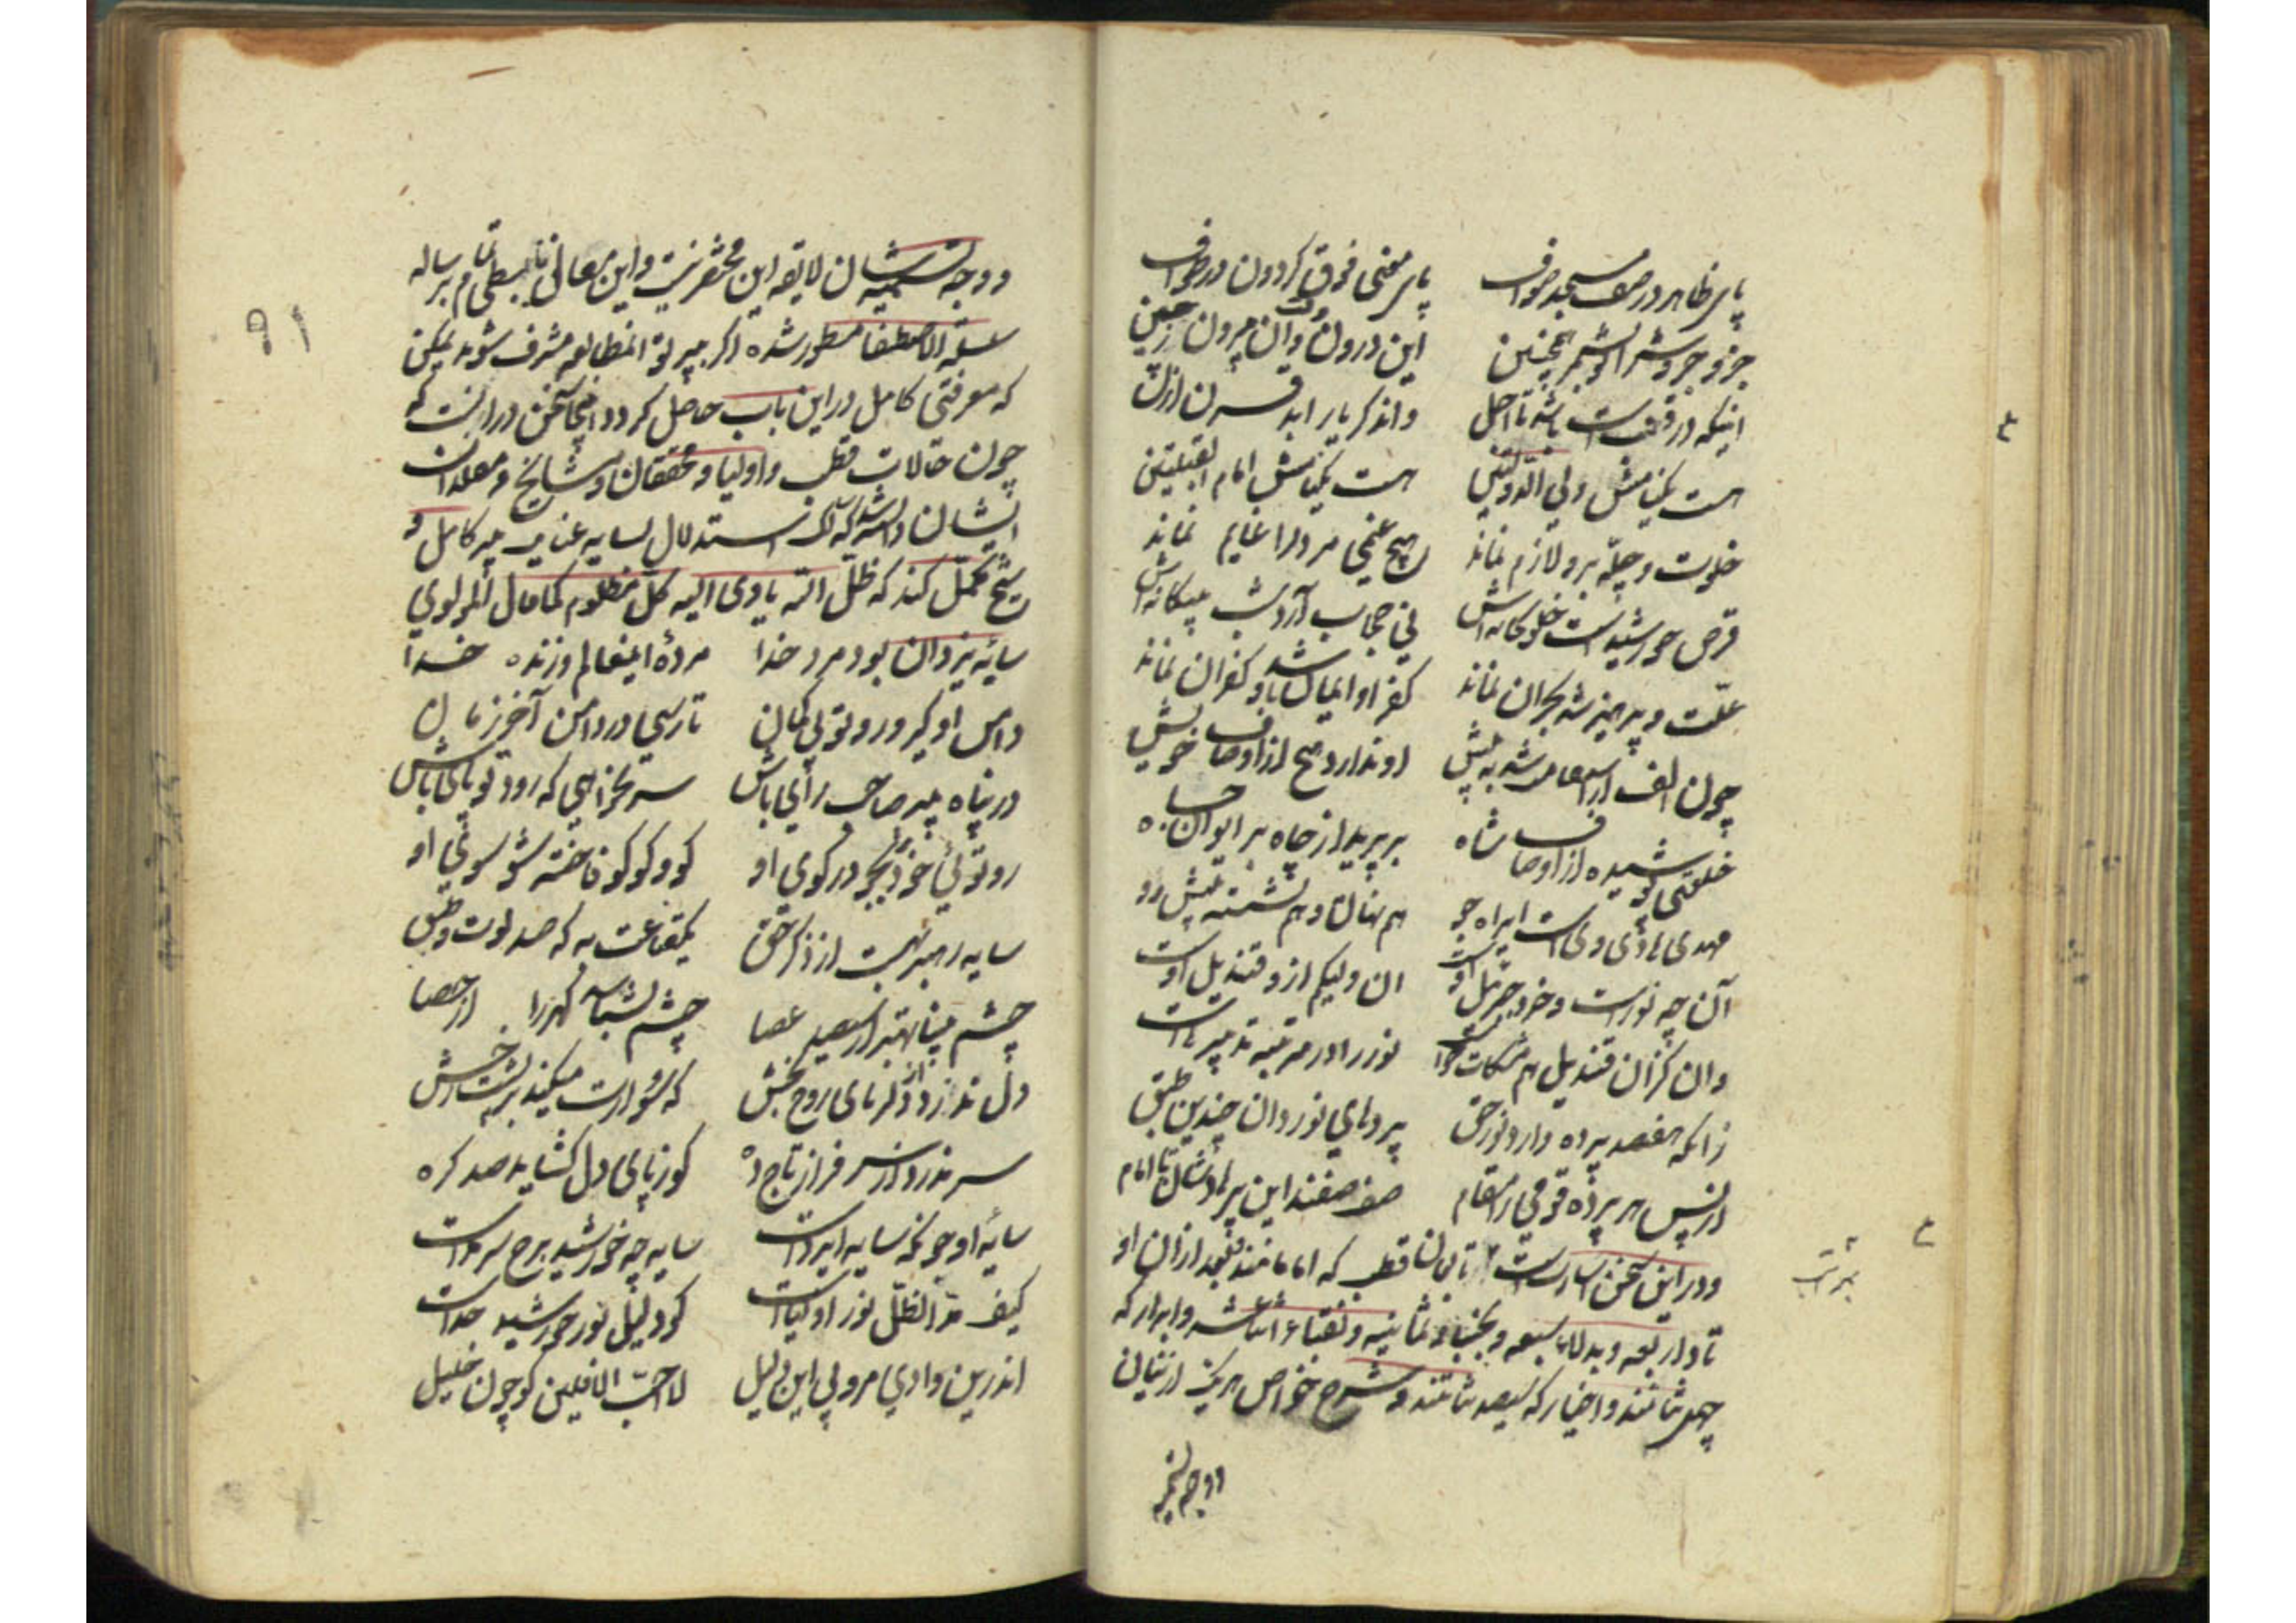 پای ظاهر در صف مسجد صواف پای معنی فوق کردون در طواف
جزو جزوش را تو بشمر همچنین این درون وقت و آن بیرون زحین
اینکه در وقتست باشد تا اجل واندکر یار ابد قرن ازل
هست یکنامش ولی الدولتین هست یکنامش امام القبلتین
خلوت و چله برو لازم نماند هیچ غیمی مر ورا غایم نماند
قرص خورشیدست خلوتخانه‌اش کی حجاب آرد شب بیکانه‌اش
علت و پرهیز شد بحران نماند کفر او ایمان شد و کفران نماند
چون الف از استقامت شد به پیش او ندارد هیچ از اوصاف خویش
خلعتی پوشیده از اوصاف شاه بر پرید از چاه بر ایوان جاه
مهدی و هادی ویست ای راه جو هم نهان و هم نشسته پیش رو
آن چه نورست و خرد جبریل اوست ان ولیکم ازو قندیل اوست
وان کزان قندیل کم مشکات ماست نور را در مرتبه تدبیرهاست
زانکه هفصد پرده دارد نور حق پردهای نور دان چندین طبق
از پس هر پرده قومی را مقام صف صفند این پردهاشان تا امام
و در این سخن اشارتست تابان قطب که امامانند بعد ازان او
تاد اربعه و بدلاء سبعه و نجباء ثمانیه و نقباء اثناعشر و ابرار که
چهل تنانند و اخیار که سیصد تنانند و شرح خواص هر یک از ایشان
ووجه تسمیه
۹۱
ووجه تسمیه شان لایقه این مختصر نیست و این معانی تا ببسطی تمام برساله
سلسلة الاصطفا مسطور شده اکر بپرتو المطالعه مشرف شوند یمکن
که معرفتی کامل در این باب حاصل کردد اینجا سخن در آنست که
چون حالات قطب و اولیا و محققان و مشایخ و معلمان
ایشان دانسته که استدلال بسایه عنایت پیر کامل و
شیخ مکمل کند که ظل الله یاوی الیه کل مظلوم کما قال المولوی
سایه یزدان بود مرد خدا مردهٔ اینعالم و زنده خدا
دامن او کیر و رو تو بی کمان تا رسی در دامن آخر زمان
در پناه پیر صاحب رای باش سر نخواهی که رود تو پای باش
رو تو نی خود بجو در کوی او کو و کو کو فاخته شو سوی او
سایه رهبر بهست از ذکر حق یکقناعت به که صد لوت و طبق
چشم بینا بهتر از سیصد عصا چشم بشناسد کهر را از حصا
دل ندزد از دلربای روح بخش که سوارت میکند بر پشت رخش
سر مدزد از سر فراز تاج ده کو ز پای دل کشاید صد کره
سایه او جو که سایه ایزدست سایه چه خورشید برج سرمدست
کیف مد الظل نور اولیاست کو دلیل نور خورشید خداست
اندرین وادی مرو بی این دلیل لا احب الافلین کو چون خلیل